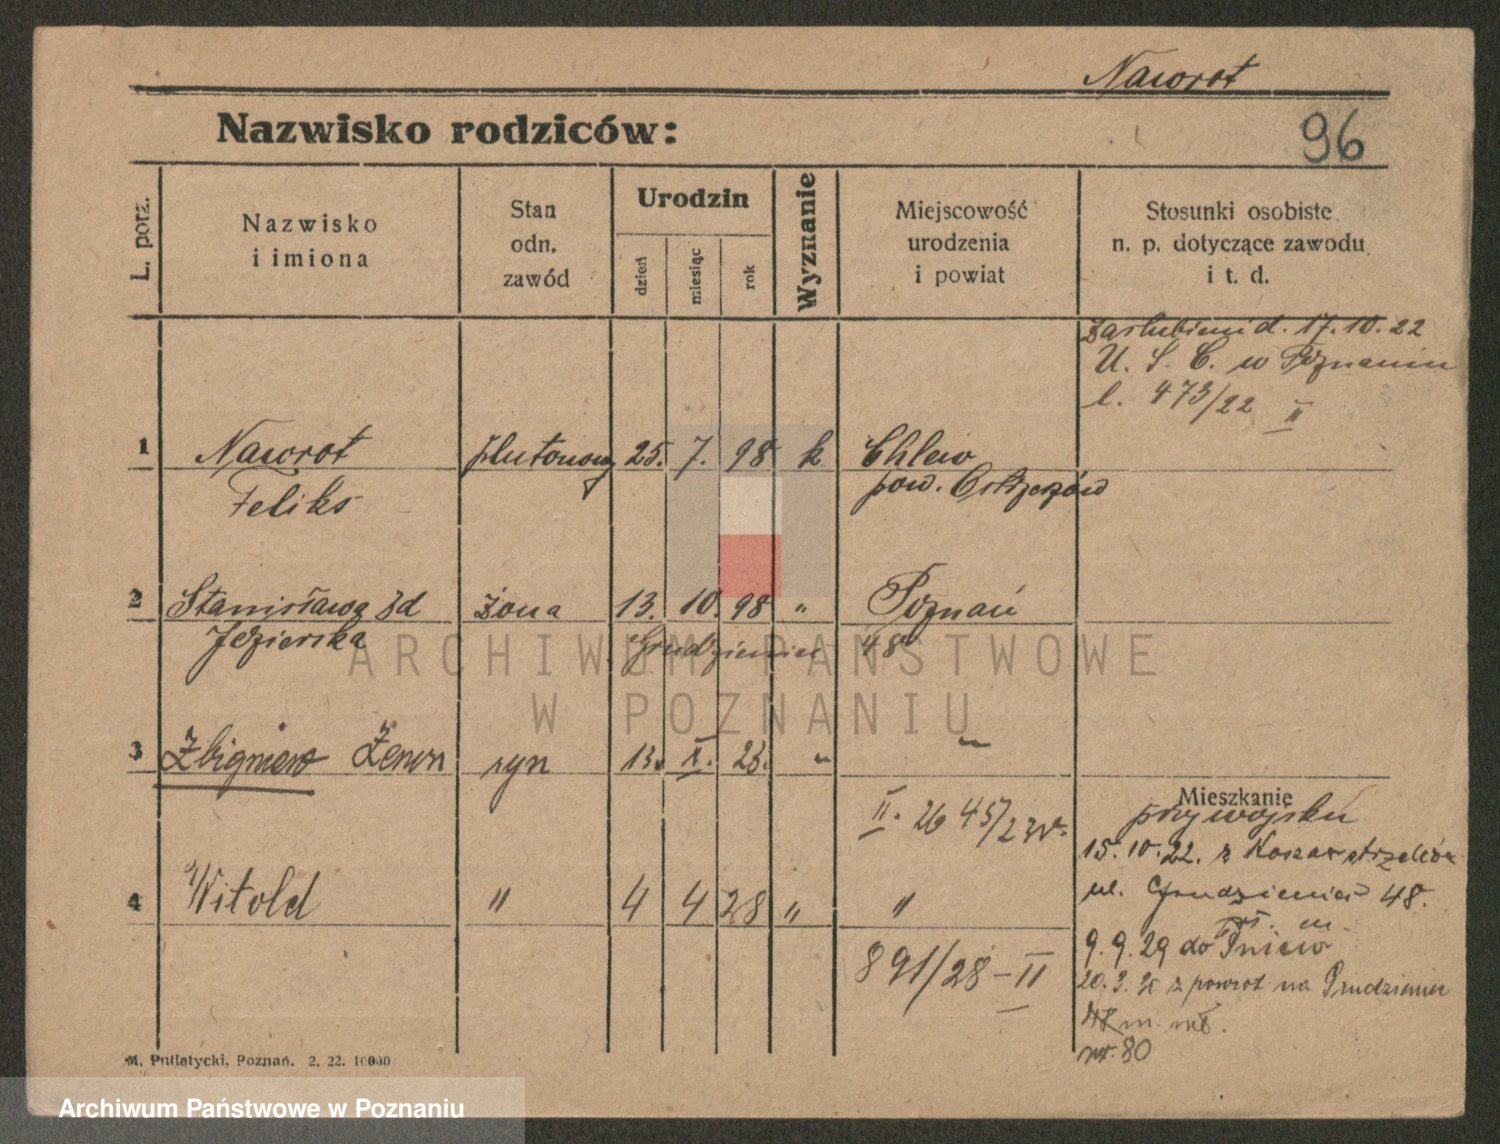 Nawrot
Nazwisko rodziców:
96
L. porz.
Nazwisko
i imiona
Stan
odn.
zawód
Urodzin
dzień
miesiąc
rok
Wyznanie
Miejscowość
urodzenia
i powiat
Stosunki osobiste
n. p. dotyczące zawodu
i t. d.
Zaślubieni d. 17.10.22
U. S. C. w Poznaniu
l. 473/22 II
1 Nawrot plutonowy 25. 7. 98 k Chlewo
Feliks pow. Ostrzeszów
2 Stanisława zd żona 13. 10. 98 " Poznań
Jezierska Grudzieniec 48
3 Zbigniew Zenon syn 13. X. 23. " "
Mieszkanie
II. 26 45/23 przy wojsku
15.10.22. z Koszar strzelców
4 Witold " 4 4 28 " "
ul. Grudzieniec 48.
m.
9.9.29 do Pniew
891/28 - II
20.3. z powrot na Grudzieniec
48 m.
nr. 80
M. Putiatycki, Poznań. 2. 22. 10000
ARCHIWUM PAŃSTWOWE
W POZNANIU
Archiwum Państwowe w Poznaniu